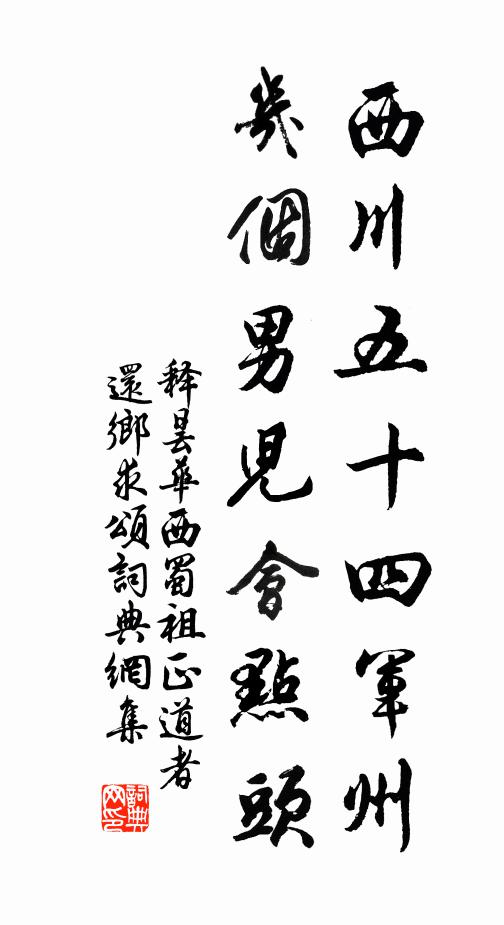 西川五十四軍州
幾個男兒會點頭
释曇華西蜀祖正道者
還鄉求頌詞典網集
詞典网印